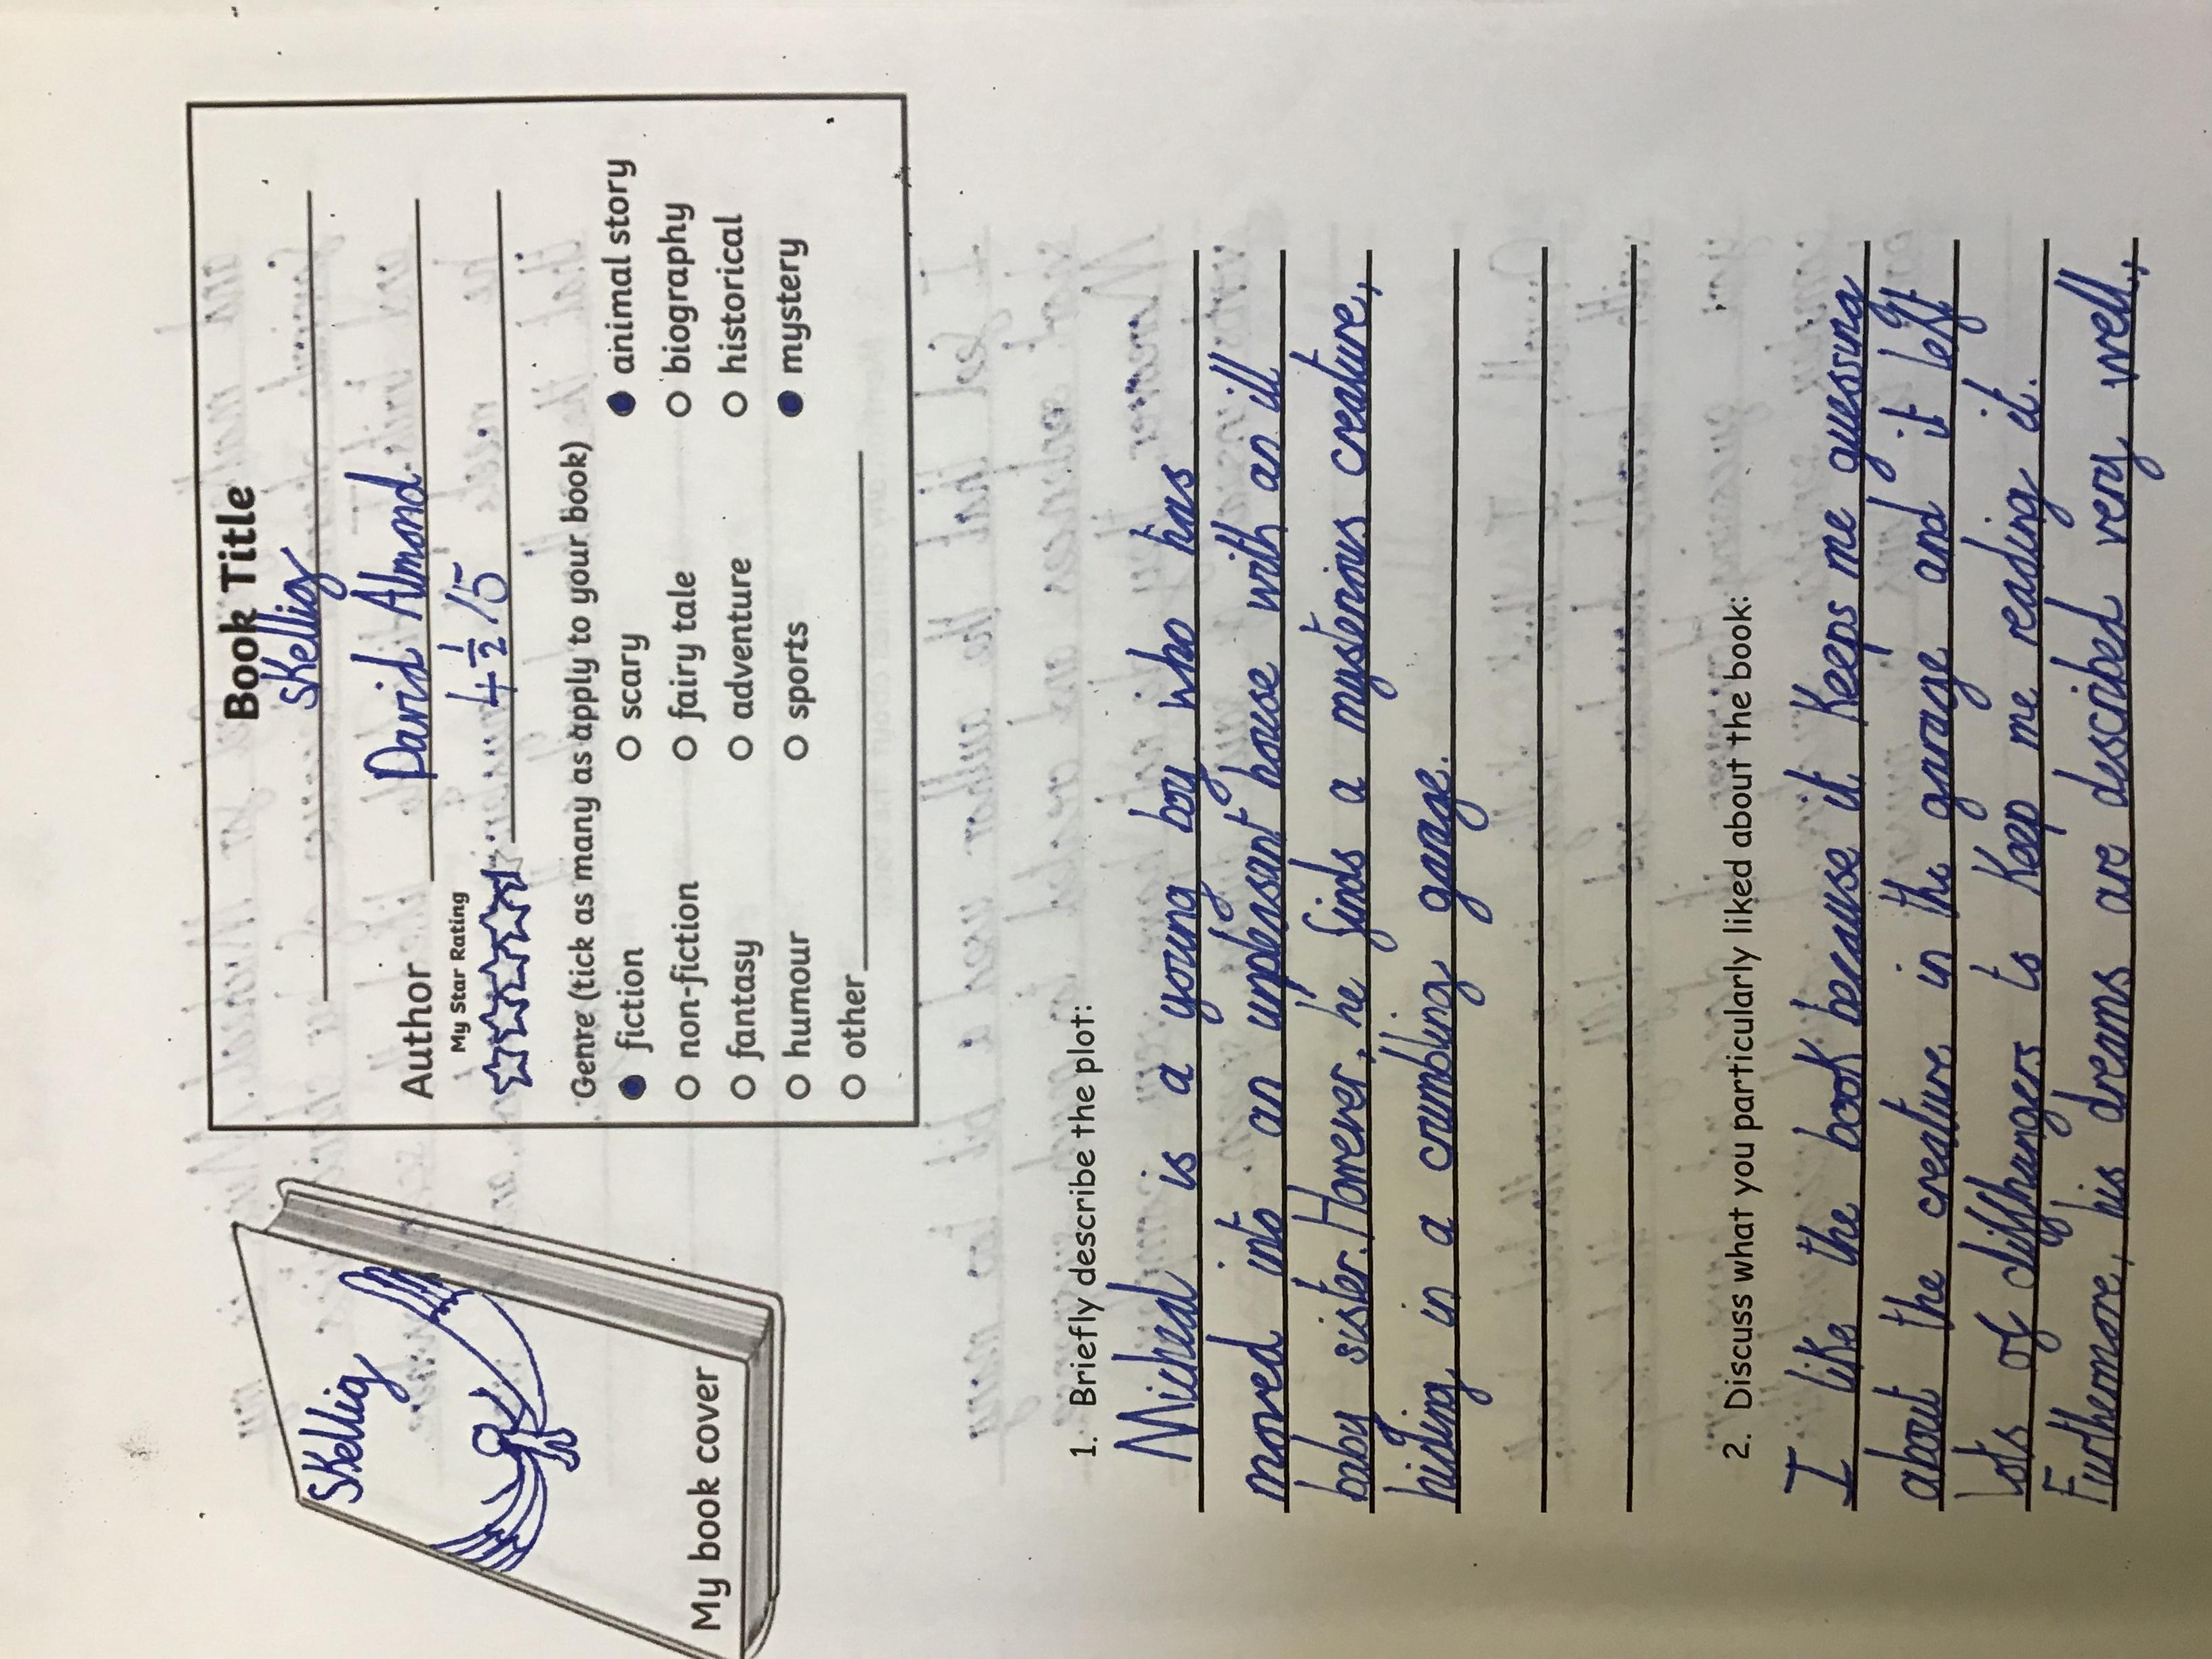 Skellig
My book cover
Book Title
Skellig
Author David Almond.
My Star Rating
4 1/2 /5
Genre (tick as many as apply to your book)
fiction
scary
animal story
non-fiction
fairy tale
biography
fantasy
adventure
historical
humour
sports
mystery
other
1. Briefly describe the plot:
Micheal is a young boy who has
moved into an unplessant house with an ill
baby sister. However, he finds a mysterious creature,
hiding in a crumbling garage.
2. Discuss what you particularly liked about the book:
I like the book because it keeps me guessing
about the creature in the garage and it left
lots of cliffhangers to keep me reading it.
Furthemore, his dreams are described very well,